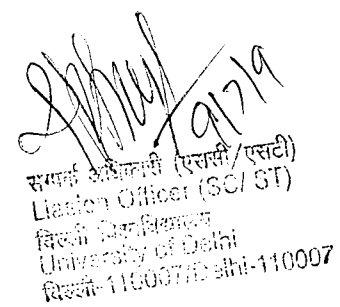 9/7/9
सम्पर्क अधिकारी (एससी/एसटी)
Liasion Officer (SC/ ST)
दिल्ली विश्वविद्यालय
University of Delhi
दिल्ली-110007/Delhi-110007